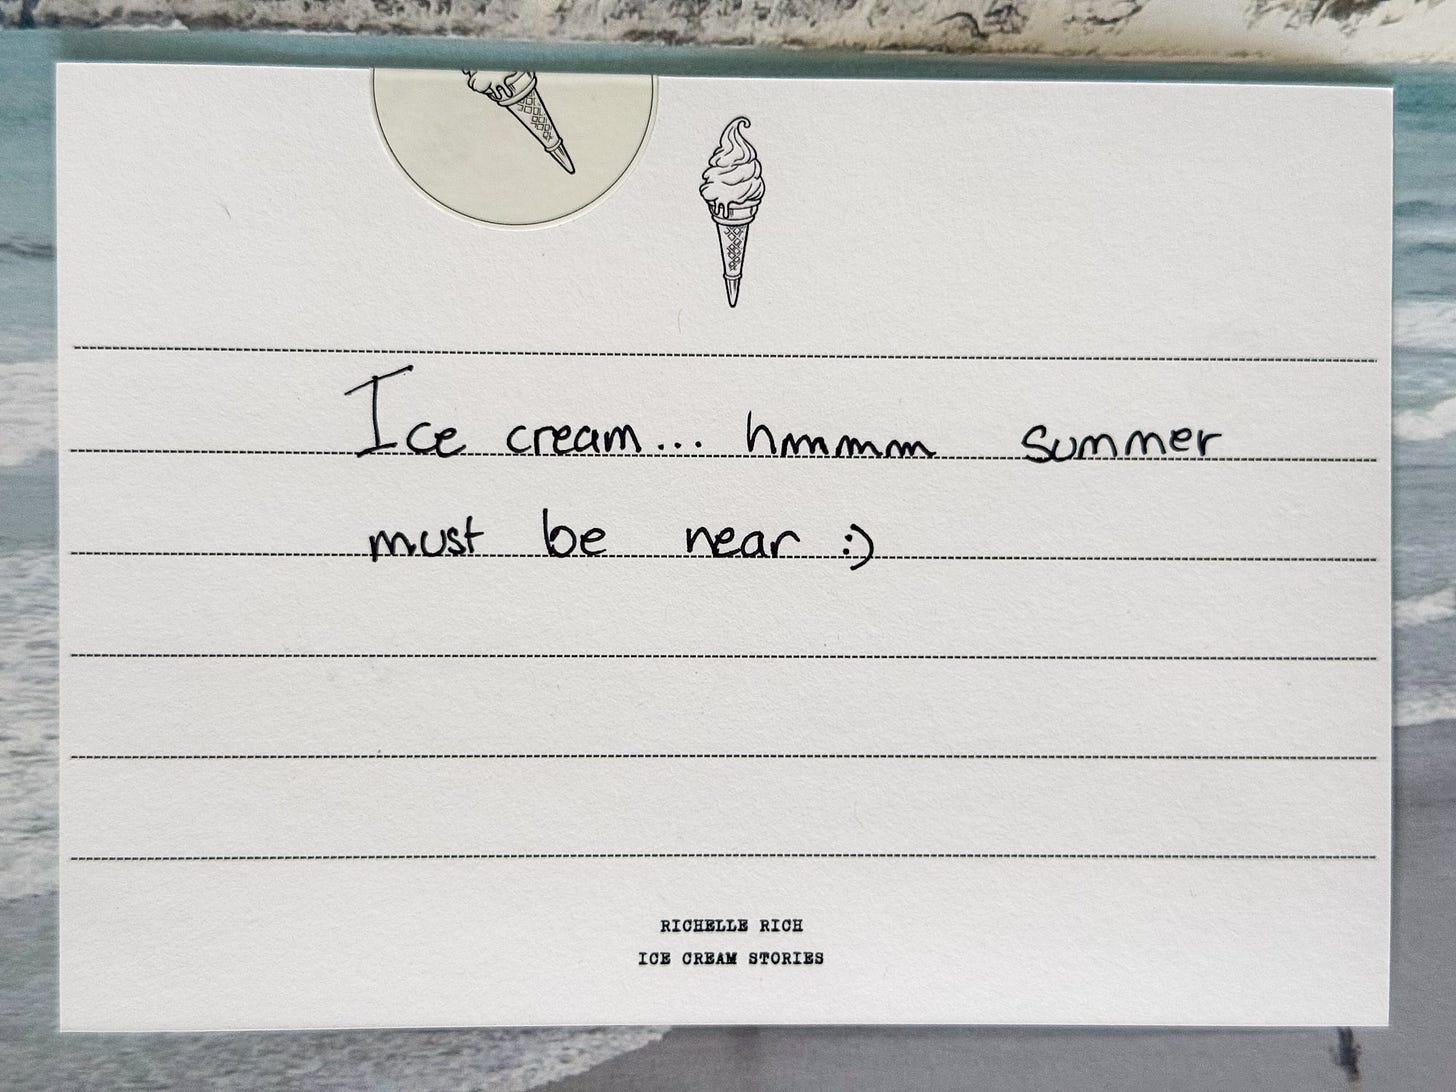 Ice cream... hmmmm summer
must be near :)
RICHELLE RICH
ICE CREAM STORIES